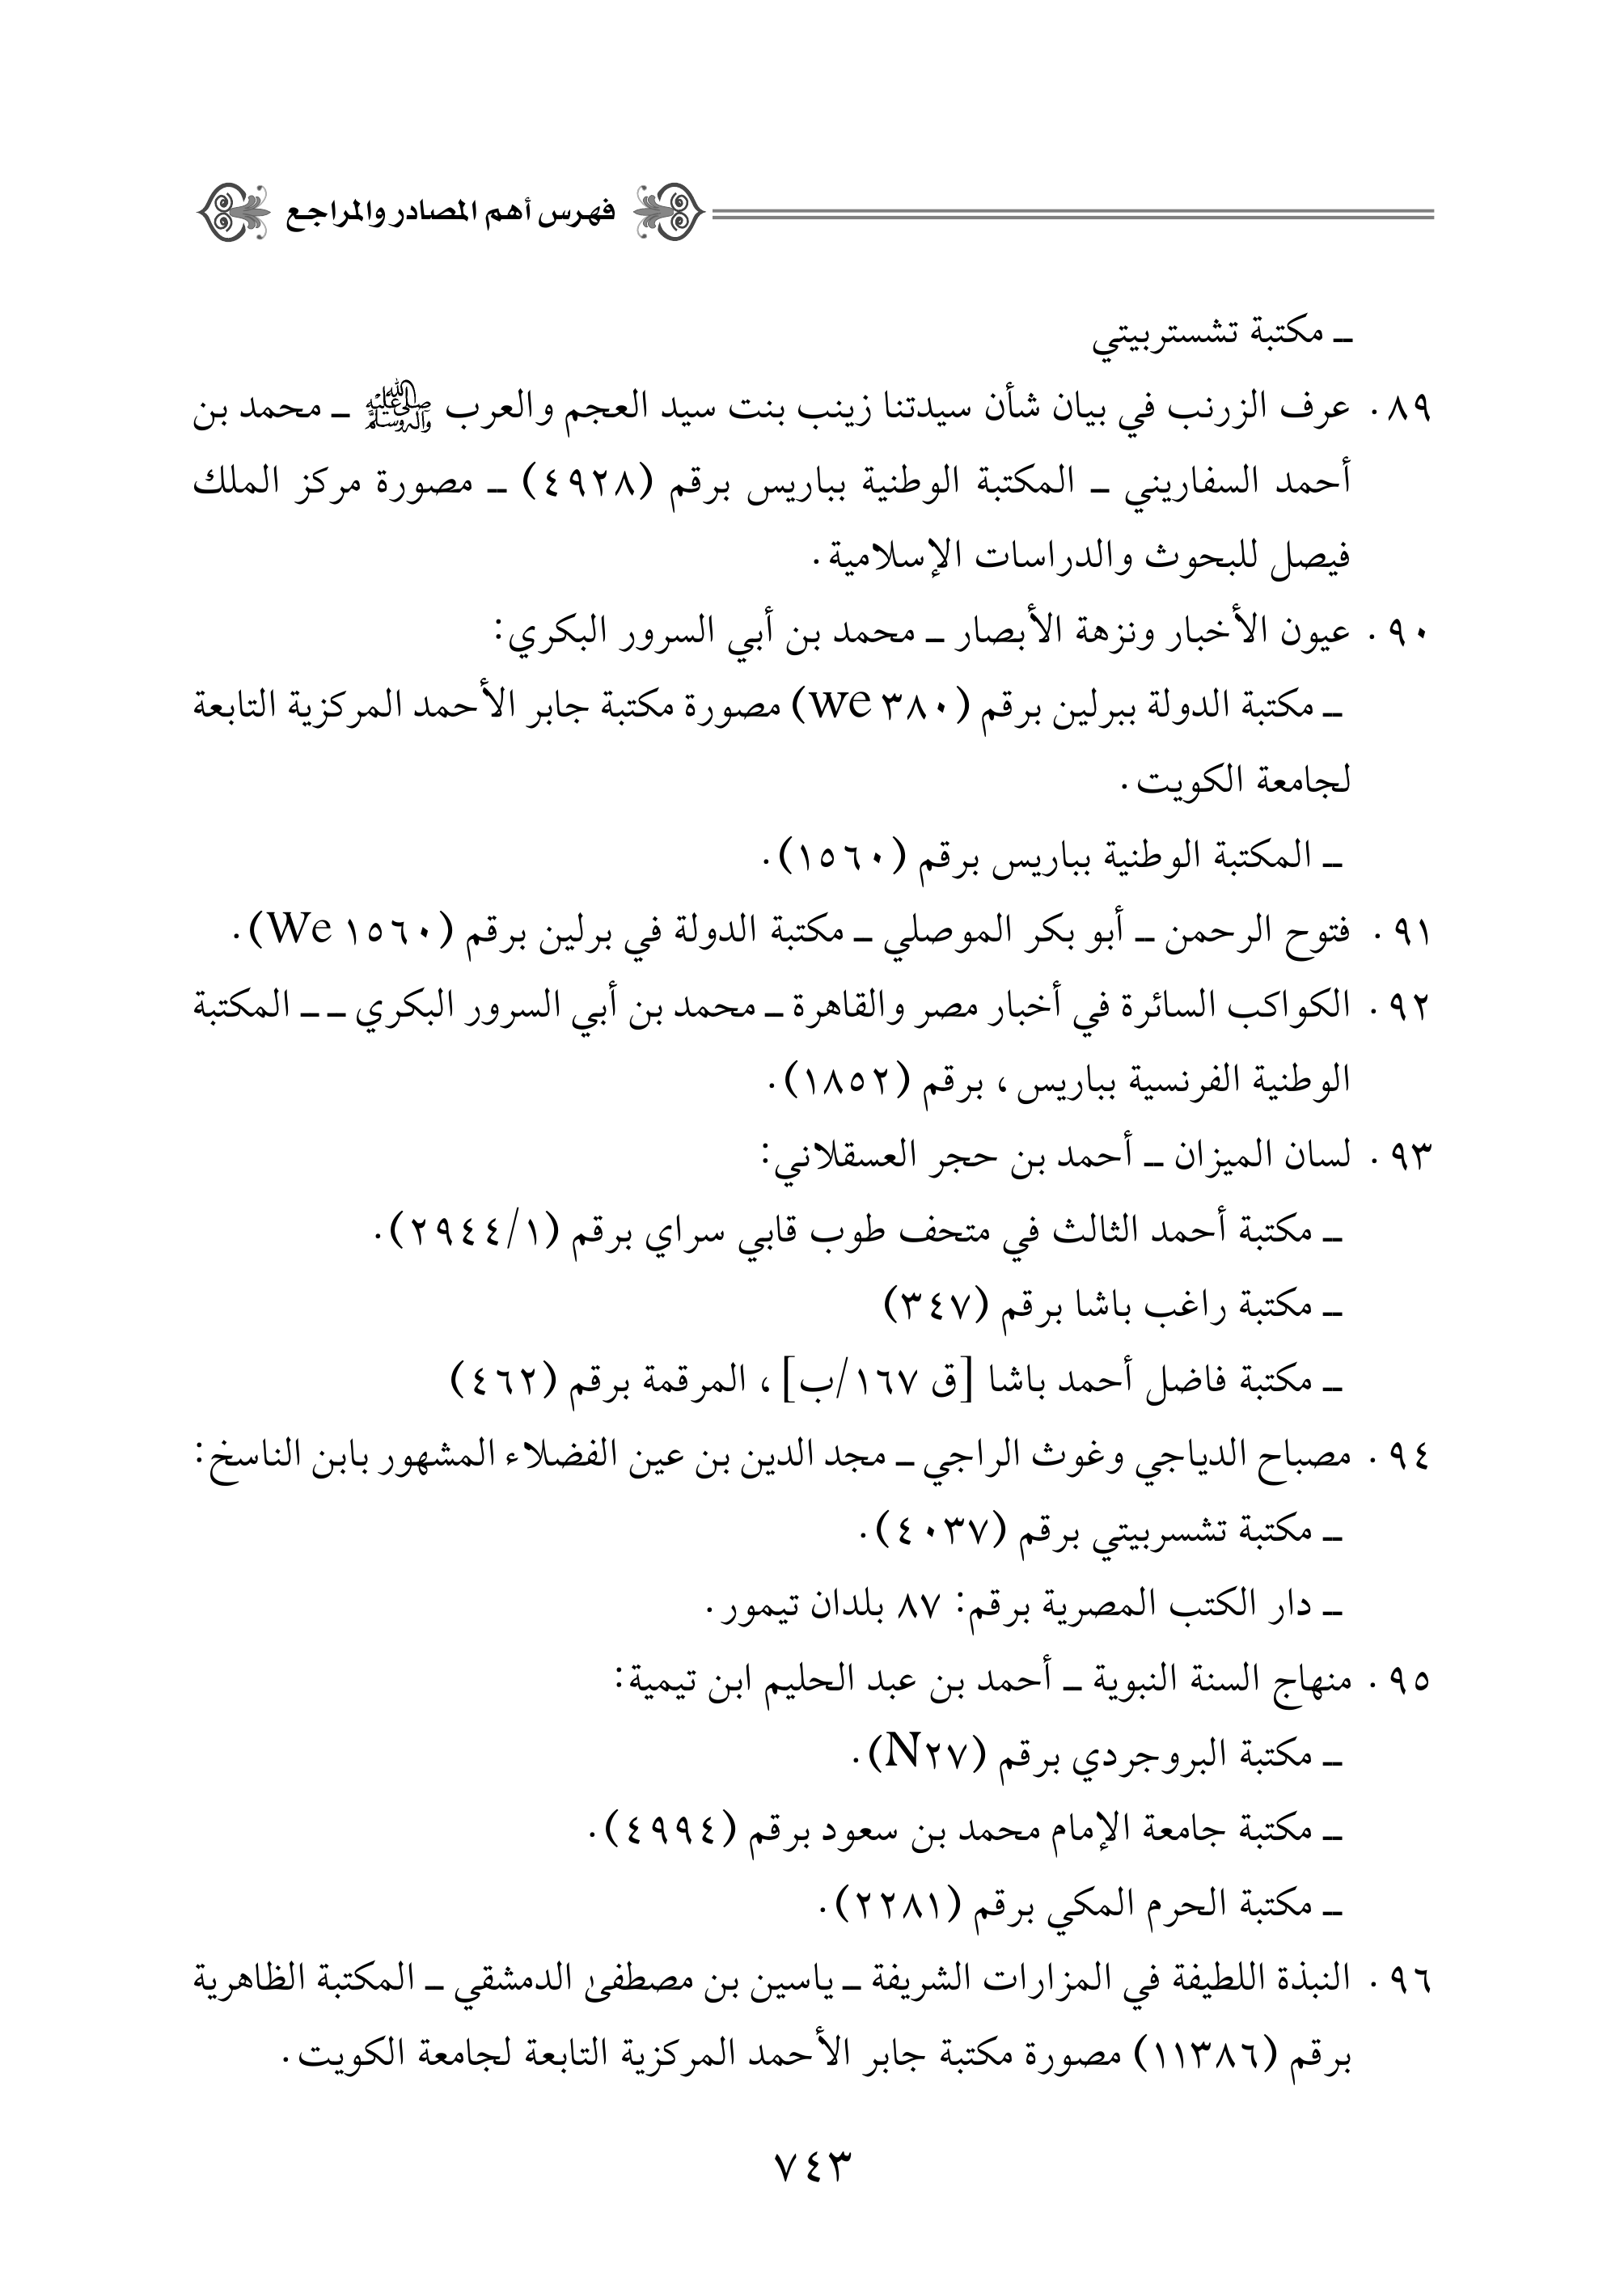 فهرس أهم المصادر والمراجع
ــ مكتبة تشستربيتي
٨٩. عرف الزرنب في بيان شأن سيدتنا زينب بنت سيد العجم والعرب ﷺ ــ محمد بن
أحمد السفاريني ــ المكتبة الوطنية بباريس برقم (٤٩٢٨) ــ مصورة مركز الملك
فيصل للبحوث والدراسات الإسلامية.
٩٠. عيون الأخبار ونزهة الأبصار ــ محمد بن أبي السرور البكري:
ــ مكتبة الدولة ببرلين برقم (we ٣٨٠) مصورة مكتبة جابر الأحمد المركزية التابعة
لجامعة الكويت.
ــ المكتبة الوطنية بباريس برقم (١٥٦٠).
٩١. فتوح الرحمن ــ أبو بكر الموصلي ــ مكتبة الدولة في برلين برقم (We ١٥٦٠).
٩٢. الكواكب السائرة في أخبار مصر والقاهرة ــ محمد بن أبي السرور البكري ــ ــ المكتبة
الوطنية الفرنسية بباريس، برقم (١٨٥٢).
٩٣. لسان الميزان ــ أحمد بن حجر العسقلاني:
ــ مكتبة أحمد الثالث في متحف طوب قابي سراي برقم (٢٩٤٤/١).
ــ مكتبة راغب باشا برقم (٣٤٧)
ــ مكتبة فاضل أحمد باشا [ق ١٦٧/ب]، المرقمة برقم (٤٦٢)
٩٤. مصباح الدياجي وغوث الراجي ــ مجد الدين بن عين الفضلاء المشهور بابن الناسخ:
ــ مكتبة تشسربيتي برقم (٤٠٣٧).
ــ دار الكتب المصرية برقم: ٨٧ بلدان تيمور.
٩٥. منهاج السنة النبوية ــ أحمد بن عبد الحليم ابن تيمية:
ــ مكتبة البروجردي برقم (N٢٧).
ــ مكتبة جامعة الإمام محمد بن سعود برقم (٤٩٩٤).
ــ مكتبة الحرم المكي برقم (٢٢٨١).
٩٦. النبذة اللطيفة في المزارات الشريفة ــ ياسين بن مصطفىٰ الدمشقي ــ المكتبة الظاهرية
برقم (١١٣٨٦) مصورة مكتبة جابر الأحمد المركزية التابعة لجامعة الكويت.
٧٤٣